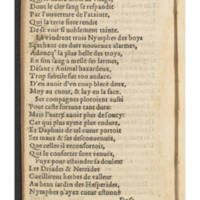 Dont le cler sang se respandit
Par l'ouuerture de l'atainte,
Qui la terre fiere rendit
De se voir si noblement tainte.
La vindrent trois Nymphes des boys
Sachant ces dure nouueaux alarmes,
Adoncq' la plus belle des trois,
En son sang a meslé ses larmes,
Disant: Animal hazardeux,
Trop subtile fut ton audace.
D'en auoir d'vn coup blecé deux,
Moy au cueur, & luy en la face.
Ses compagnes ploroient aussi
Pour ceste fortune tant dure:
Mais l'autre auoit plus de soucy:
Car qui plus ayme plus endure.
Et Daphnis de tel cueur portoit
Ses maux & ses desconuenues,
Que celles il reconfortoit,
Qui le conforter sont venues.
Puys pour estaindre sa douleur
Les Driades & Nereides
Cueillirent herbes de valleur
Au beau iardin des Hesperides,
Nymphes n'ayez cueur estonné